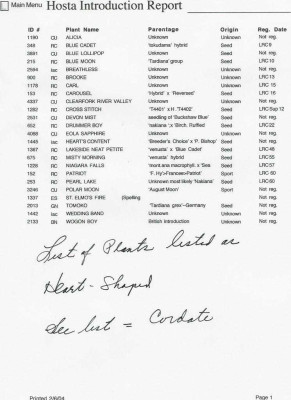 Main Menu Hosta Introduction Report
ID # Plant Name Parentage Origin Reg. Date
1190 CU ALICIA Unknown Unknown Not reg.
348 RC BLUE CADET 'tokudama' hybrid Seed LRC9
3891 CU BLUE LOLLIPOP Unknown Seed Not reg.
215 RC BLUE MOON 'Tardiana' group Seed LRC10
2594 BREATHLESS Unknown Unknown Not reg.
900 RC BROOKE Unknown Unknown LRC13
1178 RC CARL Unknown Unknown LRC15
153 RC CAROUSEL 'Hybrid' x 'Reversed' Seed LRC16
4337 CU CLEARFORK RIVER VALLEY Unknown Unknown Not reg.
1292 RC CROSS STITCH 'T4401' x H. 'T4402' Seed LRCSup 12
2531 CU DEVON MIST seedling of 'Buckshaw Blue' Seed Not reg.
652 RC DRUMMER BOY 'nakaiana' x 'Birch. Ruffled Seed LRC22
4088 CU EOLA SAPPHIRE Unknown Unknown Not reg.
1445 HEART'S CONTENT 'Breeder's Choice' x 'P. Bishop' Seed Not reg.
1367 RC LAKESIDE NEAT PETITE 'venusta' x 'Blue Cadet' Seed LRC48
675 RC MISTY MORNING 'venusta' hybrid Seed LRC55
1228 RC NIAGARA FALLS 'mont.ans macrophyll. x 'Sea Seed LRC57
152 RC PATRIOT 'F. Hy'>Frances>Patriot Sport LRC60
293 RC PEARL LAKE Unknown most likely 'Nakiana' Seed LRC60
3246 CU POLAR MOON 'August Moon' Sport Not reg.
1337 ES ST. ELMO'S FIRE (Spelling Not reg.
2013 'Tardiana grex'--Germany Seed Not reg.
1442 WEDDING BAND Unknown Unknown Not reg.
2133 BN WOGON BOY British introduction Unknown Not reg.
List of Plants listed as
Heart - Shaped
See list = Cordate
Printed 2/6/04 Page 1